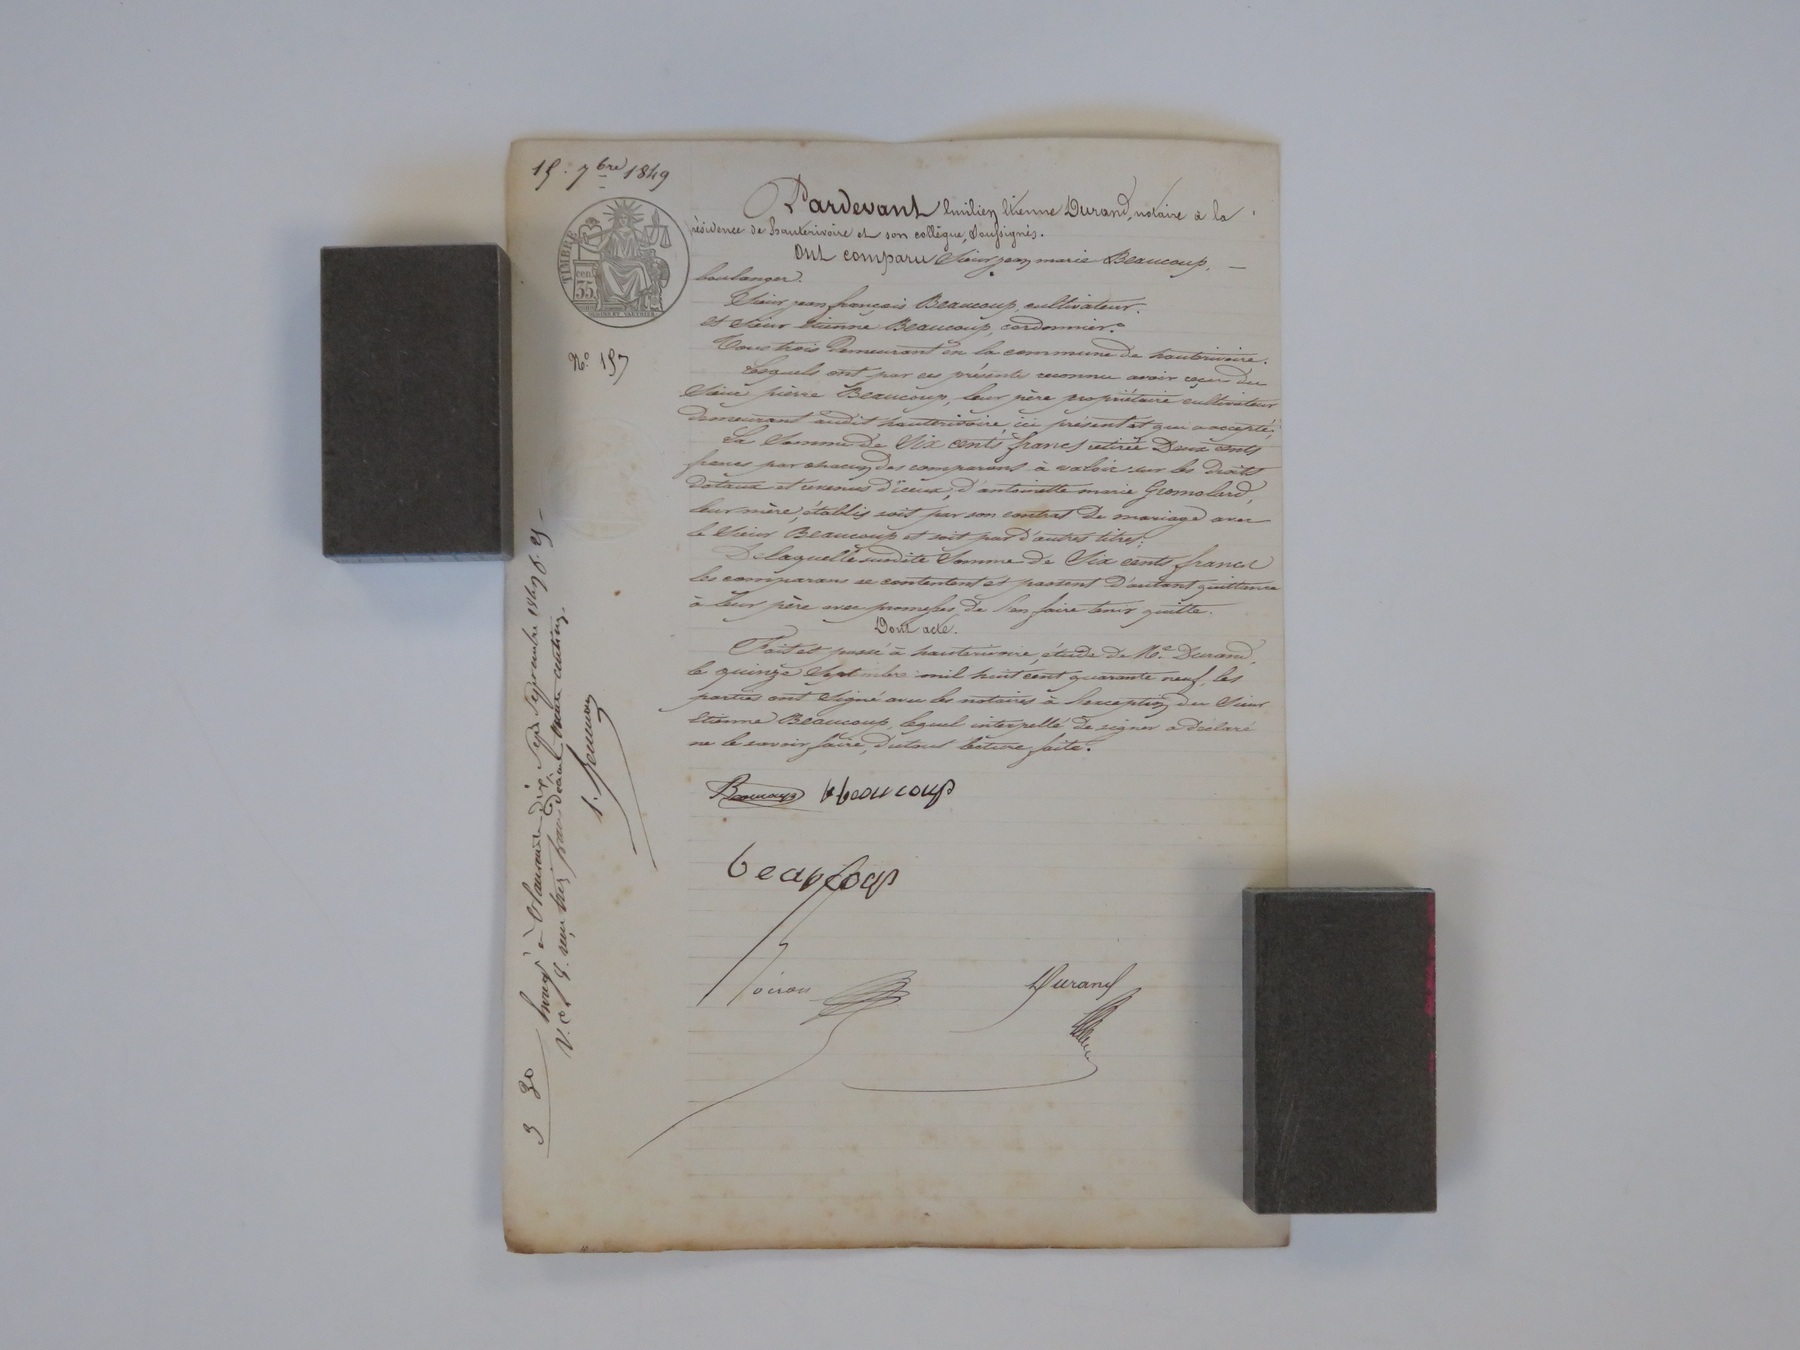 15. 7bre 1849
TIMBRE
cen.
35
N.o 157
Pardevant Emilien Etienne Durand, notaire à la
résidence de hauterivoire et son collègue, soussignés.
Ont comparu Sieur jean marie Beaucoup,
boulanger.
Sieur jean françois Beaucoup, cultivateur.
et Sieur Etienne Beaucoup, cordonnier.
Tous trois Demeurant en la commune de hauterivoire.
Lesquels ont par ces présentes reconnu avoir reçu du
Sieur pierre Beaucoup, leur père propriétaire cultivateur
demeurant audit hauterivoire, ici présent et qui accepte,
La Somme de Six cents francs Deux cents
francs par chacun des comparans à valoir sur les droits
dotaux et revenus d'iceux, d'antoinette marie Gromolard,
leur mère, établis soit par son contrat de mariage avec
le Sieur Beaucoup et soit par d'autres titres;
De laquelle susdite Somme de Six cents francs
les comparans se contentent et passent d'autant quittance
à leur père avec promesses de l'en faire tenir quitte.
Dont acte.
Fait et passé à hauterivoire, étude de Me. Durand,
le quinze Septembre mil huit cent quarante neuf, les
parties ont signé avec les notaires à l'exception du Sieur
Etienne Beaucoup, lequel interpellé de signer a déclaré
ne le savoir faire, dutout lecture faite.
Beaucoup beaucoup
beaucoup
Durand
3 30